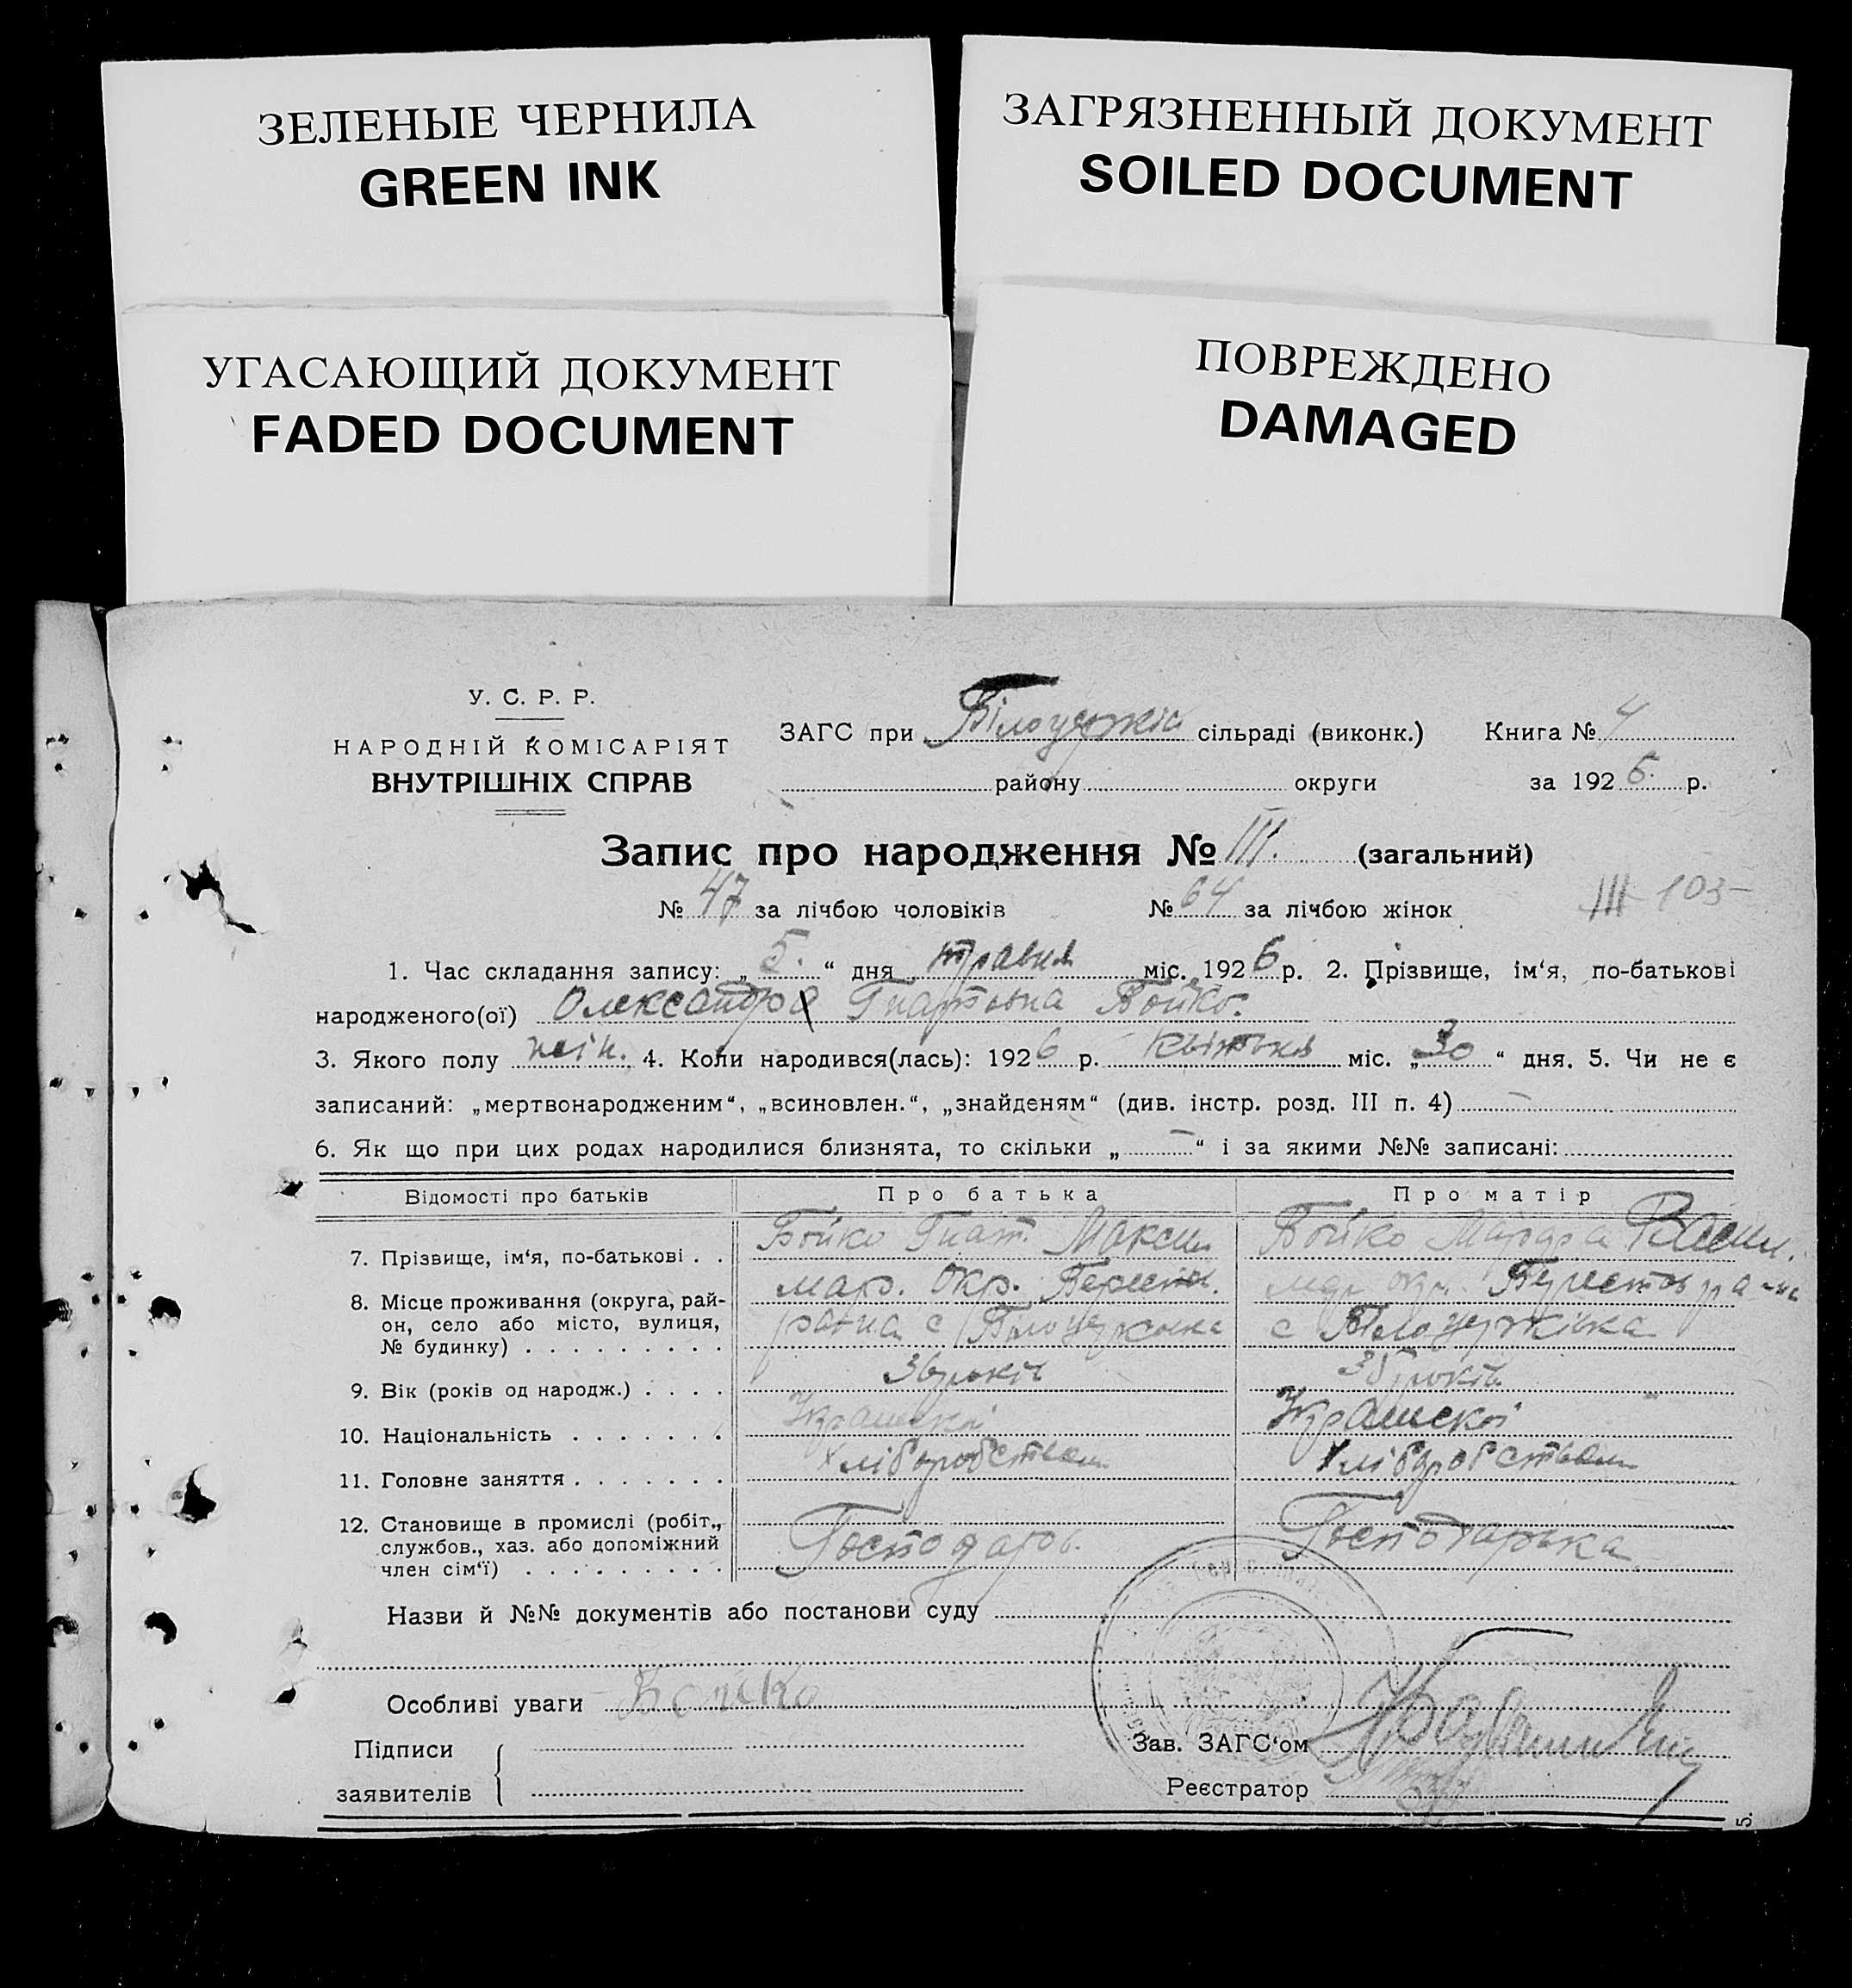 ЗЕЛЕНЫЕ ЧЕРНИЛА
GREEN INK
ЗАГРЯЗНЕННЫЙ ДОКУМЕНТ
SOILED DOCUMENT
УГАСАЮЩИЙ ДОКУМЕНТ
FADED DOCUMENT
ПОВРЕЖДЕНО
DAMAGED
У. С. Р. Р.
НАРОДНІЙ КОМІСАРІЯТ
ВНУТРІШНІХ СПРАВ
ЗАГС при сільраді (виконк.) Книга № 4
району округи за 1926 р.
Запис про народження № 111. (загальний)
№ 47 за лічбою чоловіків № 64 за лічбою жінок 103
1. Час складання запису: „5.“ дня травня міс. 1926 р. 2. Прізвище, ім‘я, по-батькові
народженого(ої) Олександра Гнатовна Бойко.
3. Якого полу жін. 4. Коли народився(лась): 1926 р. Квітня міс. „30“ дня. 5. Чи не є
записаний: „мертвонародженим“, „всиновлен.“, „знайденям“ (див. інстр. розд. III п. 4) —
6. Як що при цих родах народилися близнята, то скільки „—“ і за якими №№ записані:
Відомості про батьків Про батька Про матір
7. Прізвище, ім‘я, по-батькові . . Бойко Гнат Максим Бойко Васил.
8. Місце проживання (округа, рай- Мар. Окр. Берестов.
он, село або місто, вулиця, с с
№ будинку) . . . . . . . . .
9. Вік (років од народж.) . . . . 36 років 35 років
10. Національність . . . . . . .
11. Головне заняття . . . . . . . Хліборобством Хліборобством
12. Становище в промислі (робіт., Господар Господарька
службов., хаз. або допоміжний
член сім‘ї) . . . . . . . . .
Назви й №№ документів або постанови суду
Особливі уваги Бойко
Підписи
заявителів
Зав. ЗАГС‘ом
Реєстратор
5.